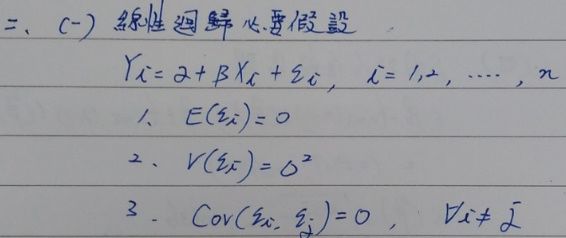 二、(一) 線性迴歸必要假設
Yi = α + βXi + εi, i = 1,2, ...., n
1. E(εi) = 0
2. V(εi) = σ²
3. Cov(εi, εj) = 0, ∀i ≠ j